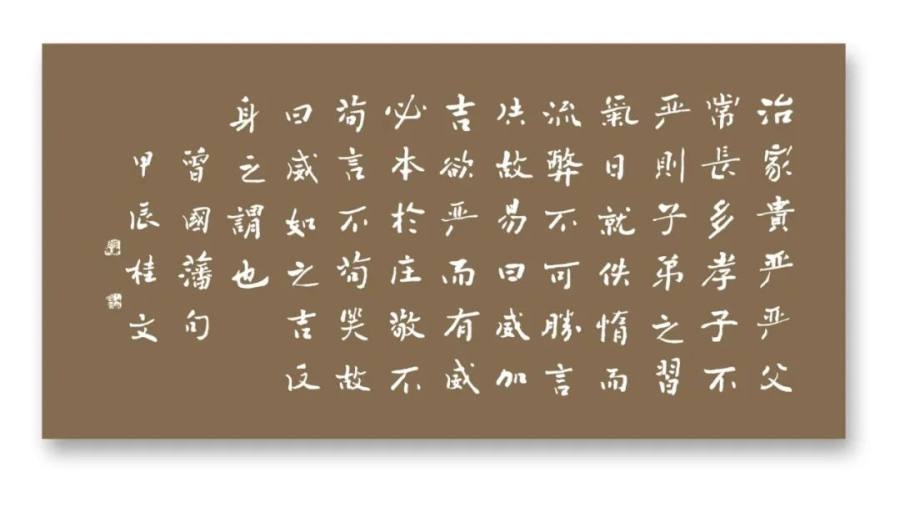 治家貴严严父
常長多孝子不
严則子弟之習
氣日就佚惰而
流弊不可勝言
故易曰威加
吉欲严而有威
必本於庄敬不
苟言不苟笑故
曰威如之吉反
身之謂也
曾國藩句
甲辰桂文